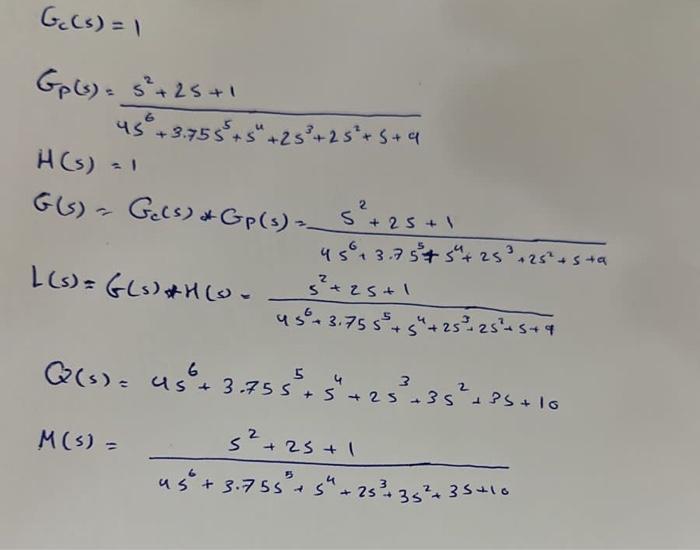 Gc(s) = 1
Gp(s) = s² + 2s + 1
4s⁶ + 3.75s⁵ + s⁴ + 2s³ + 2s² + s + 9
H(s) = 1
G(s) = Gc(s) * Gp(s) = s² + 2s + 1
4s⁶ + 3.75⁵ + s⁴ + 2s³ + 2s² + s + 9
L(s) = G(s) * H(s) = s² + 2s + 1
4s⁶ + 3.75s⁵ + s⁴ + 2s³ + 2s² + s + 9
Q(s) = 4s⁶ + 3.75s⁵ + s⁴ + 2s³ + 3s² + 3s + 10
M(s) = s² + 2s + 1
4s⁶ + 3.75s⁵ + s⁴ + 2s³ + 3s² + 3s + 10